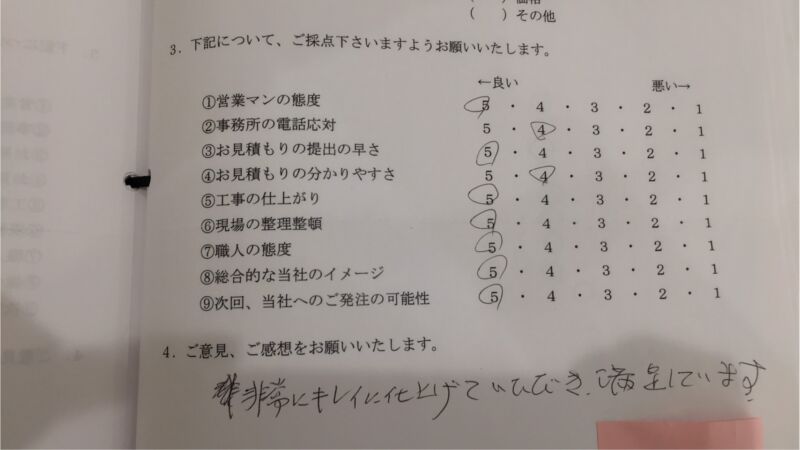 ( ) 価格
( ) その他
3．下記について、ご採点下さいますようお願いいたします。
←良い 悪い→
①営業マンの態度 5 ・ 4 ・ 3 ・ 2 ・ 1
②事務所の電話応対 5 ・ 4 ・ 3 ・ 2 ・ 1
③お見積もりの提出の早さ 5 ・ 4 ・ 3 ・ 2 ・ 1
④お見積もりの分かりやすさ 5 ・ 4 ・ 3 ・ 2 ・ 1
⑤工事の仕上がり 5 ・ 4 ・ 3 ・ 2 ・ 1
⑥現場の整理整頓 5 ・ 4 ・ 3 ・ 2 ・ 1
⑦職人の態度 5 ・ 4 ・ 3 ・ 2 ・ 1
⑧総合的な当社のイメージ 5 ・ 4 ・ 3 ・ 2 ・ 1
⑨次回、当社へのご発注の可能性 5 ・ 4 ・ 3 ・ 2 ・ 1
4．ご意見、ご感想をお願いいたします。
非常にキレイに仕上げていただき、満足しています